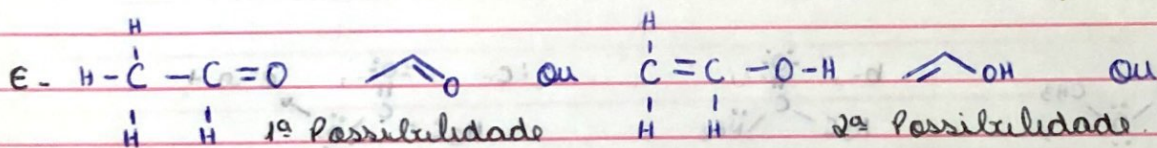 H H
E- H-C-C=O O Ou C=C-O-H OH Ou
H H 1ª Possibilidade H H 2ª Possibilidade.